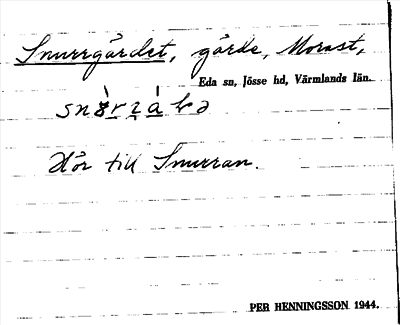 Snurrgärdet, gärde, Morast,
Eda sn, Jösse hd, Värmlands län.
Hör till Snurran.
PER HENNINGSSON 1944.